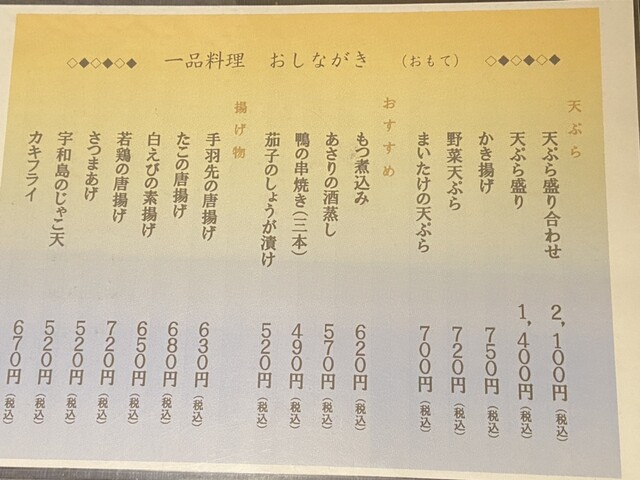 ◇◆◇◆◇◆ 一品料理 おしながき (おもて) ◇◆◇◆◇◆
天ぷら
天ぷら盛り合わせ 2,100円(税込)
天ぷら盛り 1,400円(税込)
かき揚げ 750円(税込)
野菜天ぷら 720円(税込)
まいたけの天ぷら 700円(税込)
おすすめ
もつ煮込み 620円(税込)
あさりの酒蒸し 570円(税込)
鴨の串焼き(三本) 490円(税込)
茄子のしょうが漬け 520円(税込)
揚げ物
手羽先の唐揚げ 630円(税込)
たこの唐揚げ 680円(税込)
白えびの素揚げ 650円(税込)
若鶏の唐揚げ 720円(税込)
さつまあげ 520円(税込)
宇和島のじゃこ天 520円(税込)
カキフライ 670円(税込)